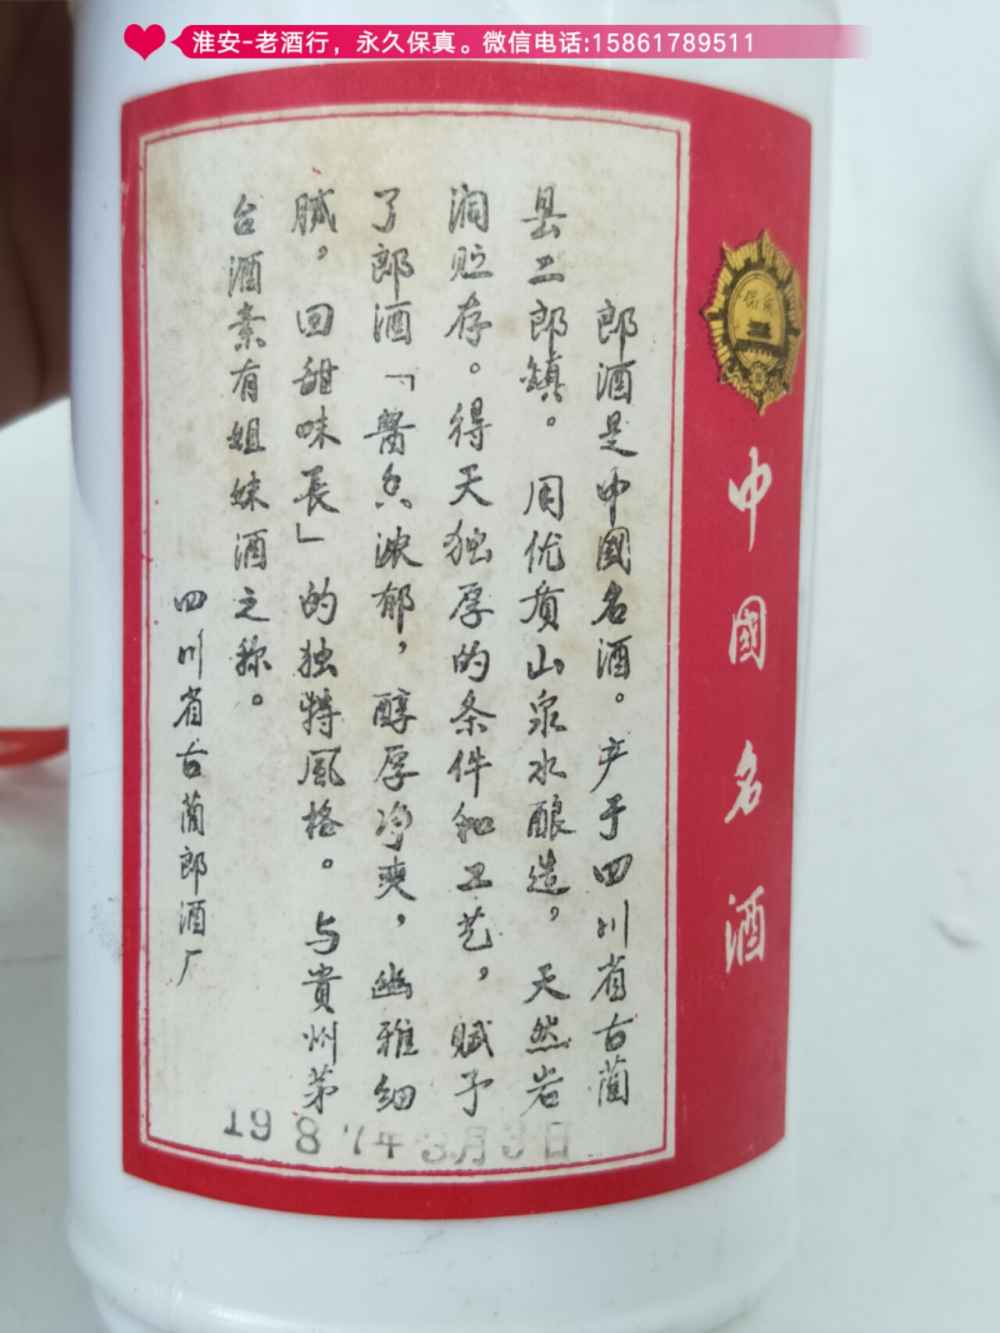 淮安-老酒行，永久保真。微信电话:15861789511
中國名酒
郎酒是中國名酒。产于四川省古蔺
县二郎镇。用优质山泉水酿造，天然岩
洞贮存。得天独厚的条件和工艺，赋予
了郎酒「醬香浓郁，醇厚净爽，幽雅细
腻，回甜味長」的独特風格。与貴州茅
台酒素有姐妹酒之称。
四川省古蔺郎酒厂
198 年3月3日